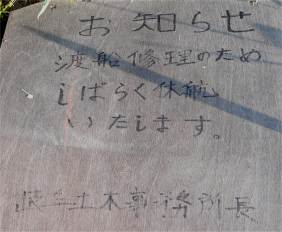 お知らせ
渡船修理のため
しばらく休航
いたします。
岐阜土木事務所長